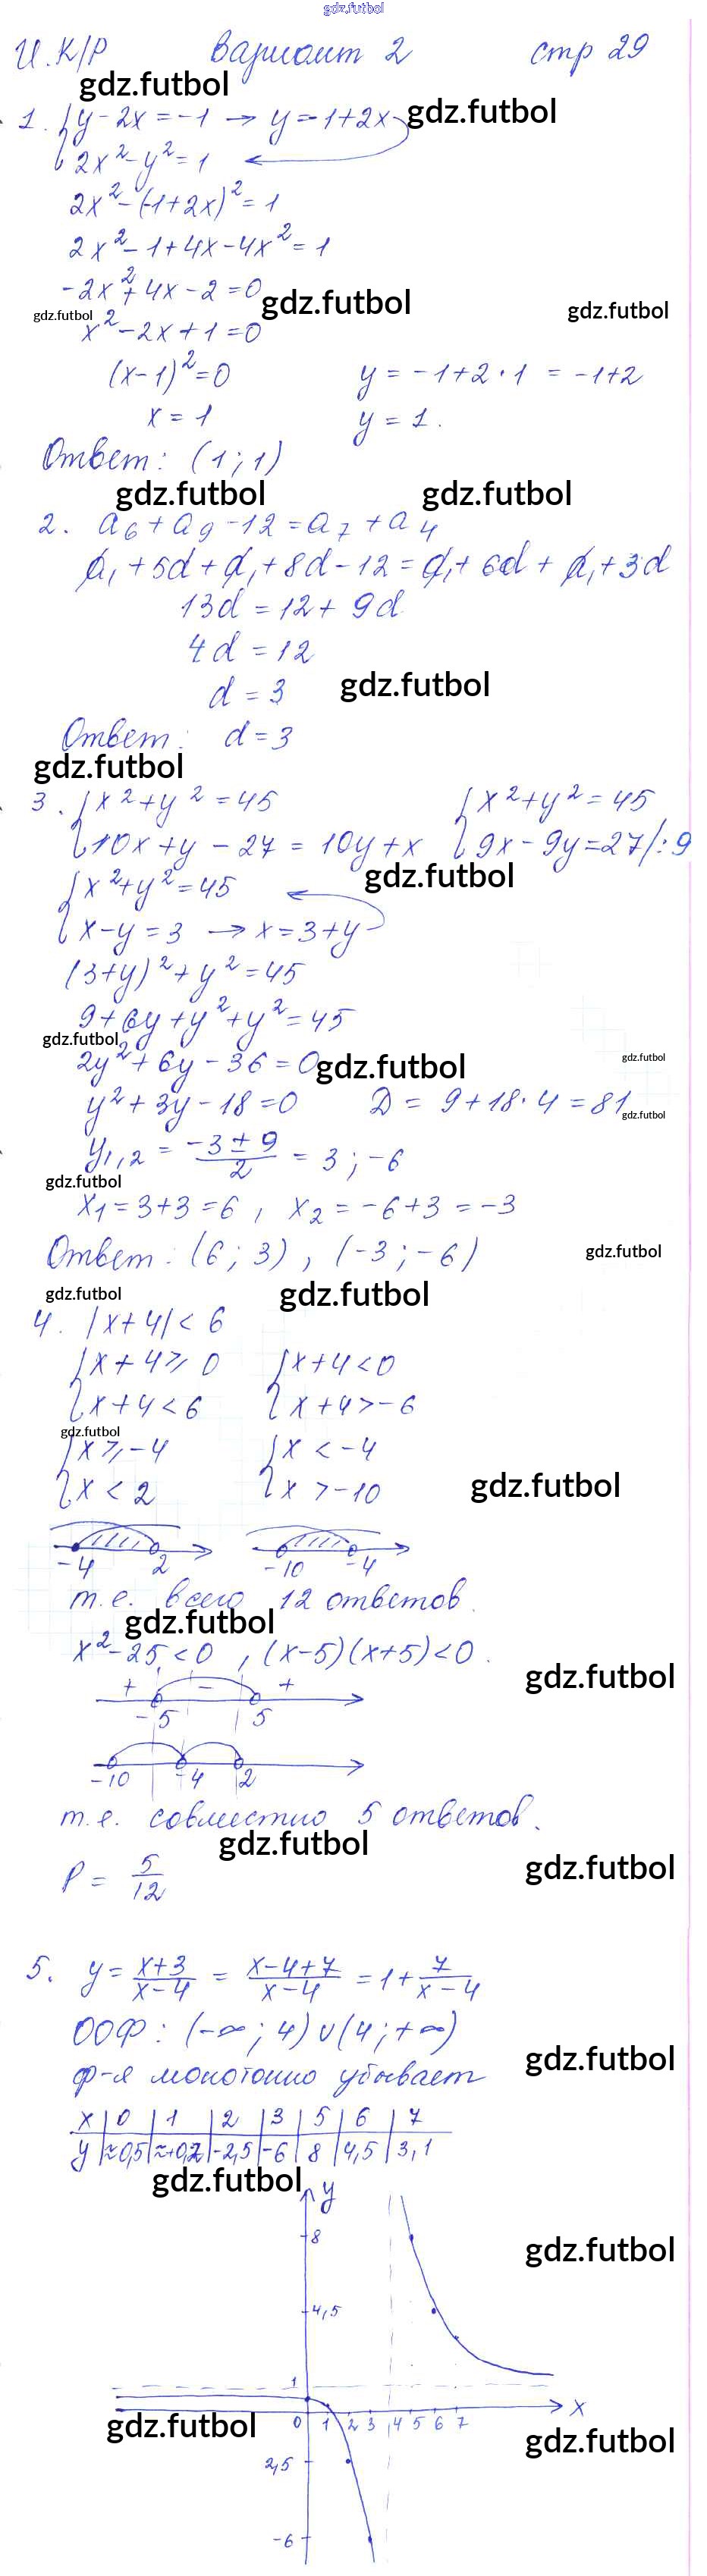 gdz.futbol
И. К/Р Вариант 2 стр 29
gdz.futbol
1. { y - 2x = -1 → y = -1 + 2x gdz.futbol
2x² - y² = 1
2x² - (-1 + 2x)² = 1
2x² - 1 + 4x - 4x² = 1
-2x² + 4x - 2 = 0 gdz.futbol gdz.futbol
gdz.futbol x² - 2x + 1 = 0
(x - 1)² = 0 y = -1 + 2 · 1 = -1 + 2
x = 1 y = 1.
Ответ: (1; 1)
gdz.futbol gdz.futbol
2. a₆ + a₉ - 12 = a₇ + a₄
a₁ + 5d + a₁ + 8d - 12 = a₁ + 6d + a₁ + 3d
13d = 12 + 9d
4d = 12
d = 3 gdz.futbol
Ответ: d = 3
gdz.futbol
3. { x² + y² = 45 { x² + y² = 45
10x + y - 27 = 10y + x 9x - 9y = 27 /: 9
{ x² + y² = 45 gdz.futbol
x - y = 3 → x = 3 + y
(3 + y)² + y² = 45
9 + 6y + y² + y² = 45
gdz.futbol
2y² + 6y - 36 = 0 gdz.futbol gdz.futbol
y² + 3y - 18 = 0 D = 9 + 18 · 4 = 81 gdz.futbol
y₁,₂ = (-3 ± 9)/2 = 3; -6
gdz.futbol
x₁ = 3 + 3 = 6, x₂ = -6 + 3 = -3
Ответ: (6; 3), (-3; -6) gdz.futbol
gdz.futbol gdz.futbol
4. |x + 4| < 6
{ x + 4 ⩾ 0 { x + 4 < 0
x + 4 < 6 x + 4 > -6
gdz.futbol
{ x ⩾ -4 { x < -4
x < 2 x > -10 gdz.futbol
-4 2 -10 -4
т.е. всего 12 ответов.
gdz.futbol
x² - 25 < 0, (x - 5)(x + 5) < 0. gdz.futbol
+ - +
-5 5
-10 -4 2
т.е. совместно 5 ответов.
gdz.futbol gdz.futbol
P = 5/12
5. y = (x+3)/(x-4) = (x-4+7)/(x-4) = 1 + 7/(x-4)
ООФ: (-∞; 4) ∪ (4; +∞) gdz.futbol
ф-я монотонно убывает
x | 0 | 1 | 2 | 3 | 5 | 6 | 7
y | -2,5 | -6 | 8 | 4,5 | 3,1
gdz.futbol y
8 gdz.futbol
4,5
1
x
gdz.futbol 0 1 2 3 4 5 6 7 gdz.futbol
2,5
-6